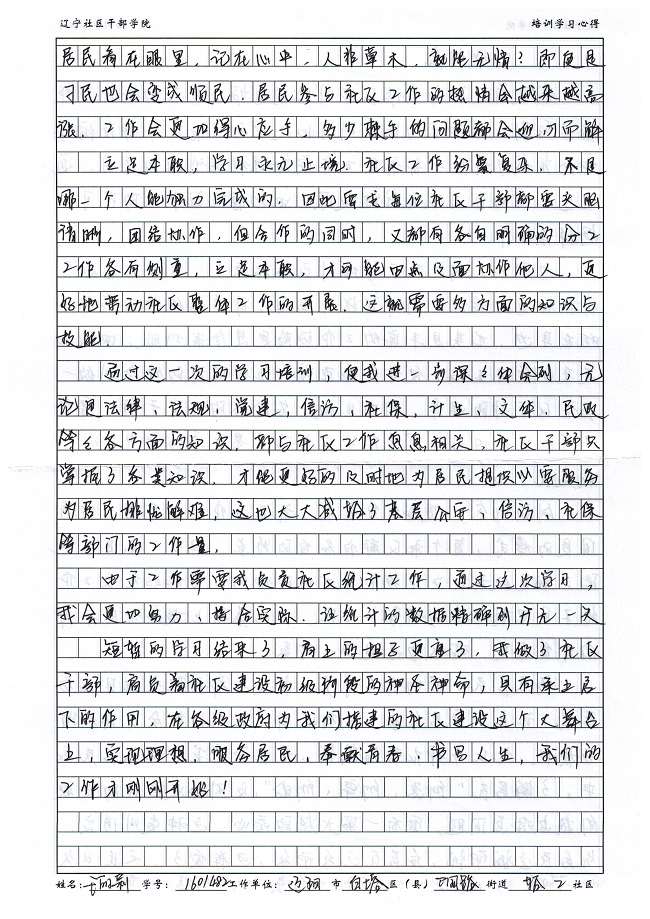 辽宁社区干部学院 培训学习心得
居民看在眼里，记在心中，人非草木，孰能无情？即使是
刁民也会变成顺民，居民参与社区工作的热情会越来越高
涨，工作会更加得心应手，多少棘手的问题都会迎刃而解
立足本职，学习永无止境。社区工作纷繁复杂，不是
哪一个人能独力完成的，因此要求每位社区干部都要头脑
清晰，团结协作，但合作的同时，又都有各自明确的分工
工作各有侧重，立足本职，才可能由点及面协作他人，更
好地带动社区整体工作的开展。这就需要多方面的知识与
技能。
通过这一次的学习培训，使我进一步深之体会到，无
论是法律、法规，党建，信访，社保，计生，文体，民政
等之各方面的知识，都与社区工作息息相关，社区干部只
掌握了各类知识，才能更好的及时地为居民提供以需服务
为居民排忧解难，这也大大减轻了基层公安、信访、社保
等部门的工作量。
由于工作需要我负责社区统计工作，通过这次学习，
我会更加努力，结合实际，让统计的数据精确到万无一失
短暂的学习结束了，肩上的担子更重了，我做为社区
干部，肩负着社区建设初级阶段的神圣使命，具有承上启
下的作用，在各级政府为我们搭建的社区建设这个大舞台
上，实现理想，服务居民，奉献青春，书写人生，我们的
工作才刚刚开始！
姓名： 学号：1601482 工作单位：辽阳 市 白塔 区（县） 街道 社区